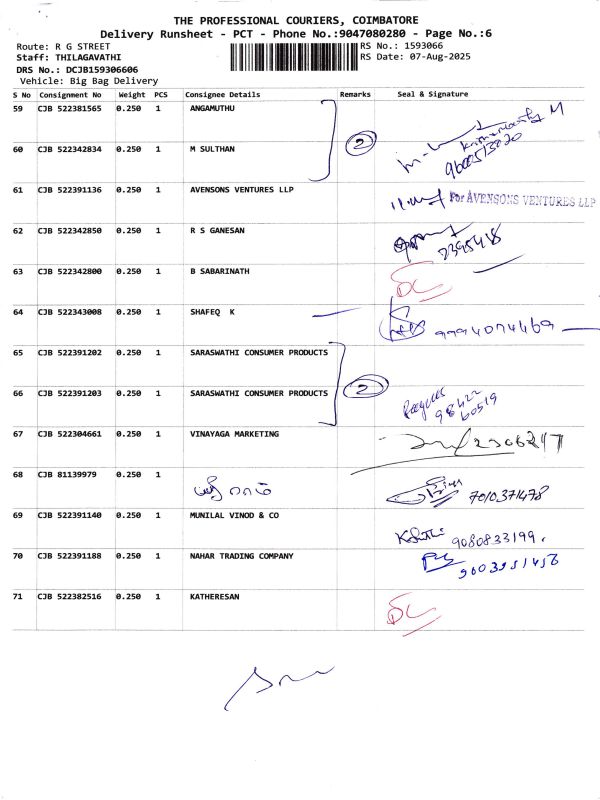 THE PROFESSIONAL COURIERS, COIMBATORE
Delivery Runsheet - PCT - Phone No.:9047080280 - Page No.:6
Route: R G STREET RS No.: 1593066
Staff: THILAGAVATHI RS Date: 07-Aug-2025
DRS No.: DCJB159306606
Vehicle: Big Bag Delivery
S No Consignment No Weight PCS Consignee Details Remarks Seal & Signature
59 CJB 522381565 0.250 1 ANGAMUTHU
60 CJB 522342834 0.250 1 M SULTHAN 2
61 CJB 522391136 0.250 1 AVENSONS VENTURES LLP For AVENSONS VENTURES LLP
62 CJB 522342850 0.250 1 R S GANESAN
63 CJB 522342800 0.250 1 B SABARINATH DC
64 CJB 522343008 0.250 1 SHAFEQ K 9994074469
65 CJB 522391202 0.250 1 SARASWATHI CONSUMER PRODUCTS
66 CJB 522391203 0.250 1 SARASWATHI CONSUMER PRODUCTS 2 98422
60519
67 CJB 522304661 0.250 1 VINAYAGA MARKETING
68 CJB 81139979 0.250 1 7010371478
69 CJB 522391140 0.250 1 MUNILAL VINOD & CO 9080833199.
70 CJB 522391188 0.250 1 NAHAR TRADING COMPANY
71 CJB 522382516 0.250 1 KATHERESAN DC